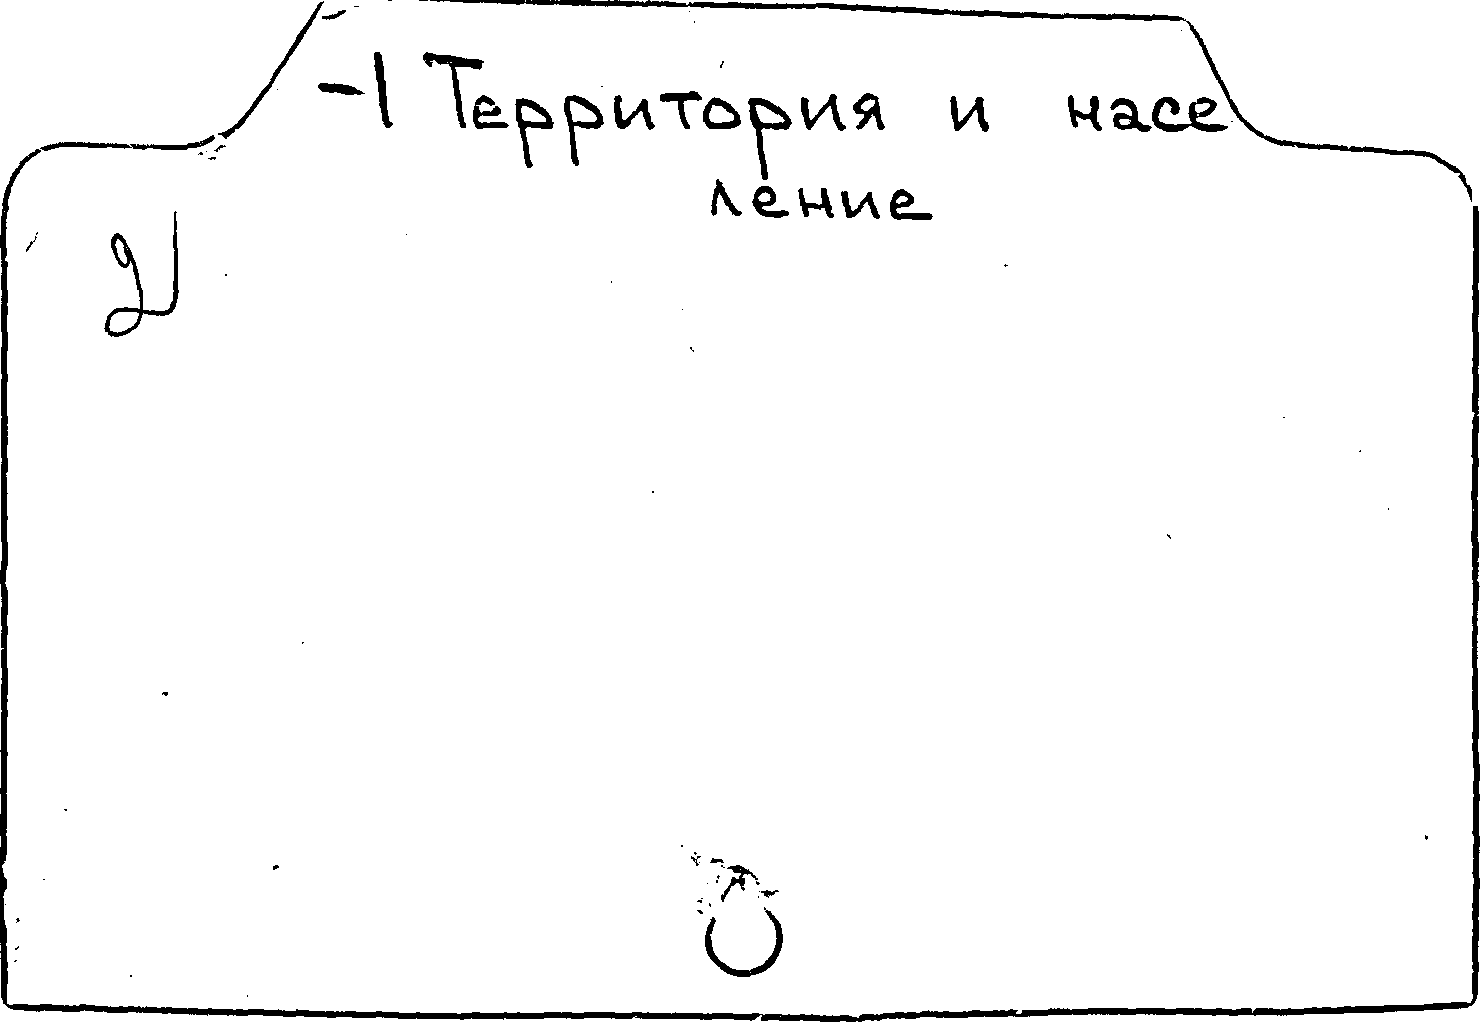 -1 Территория и насе
ление
21